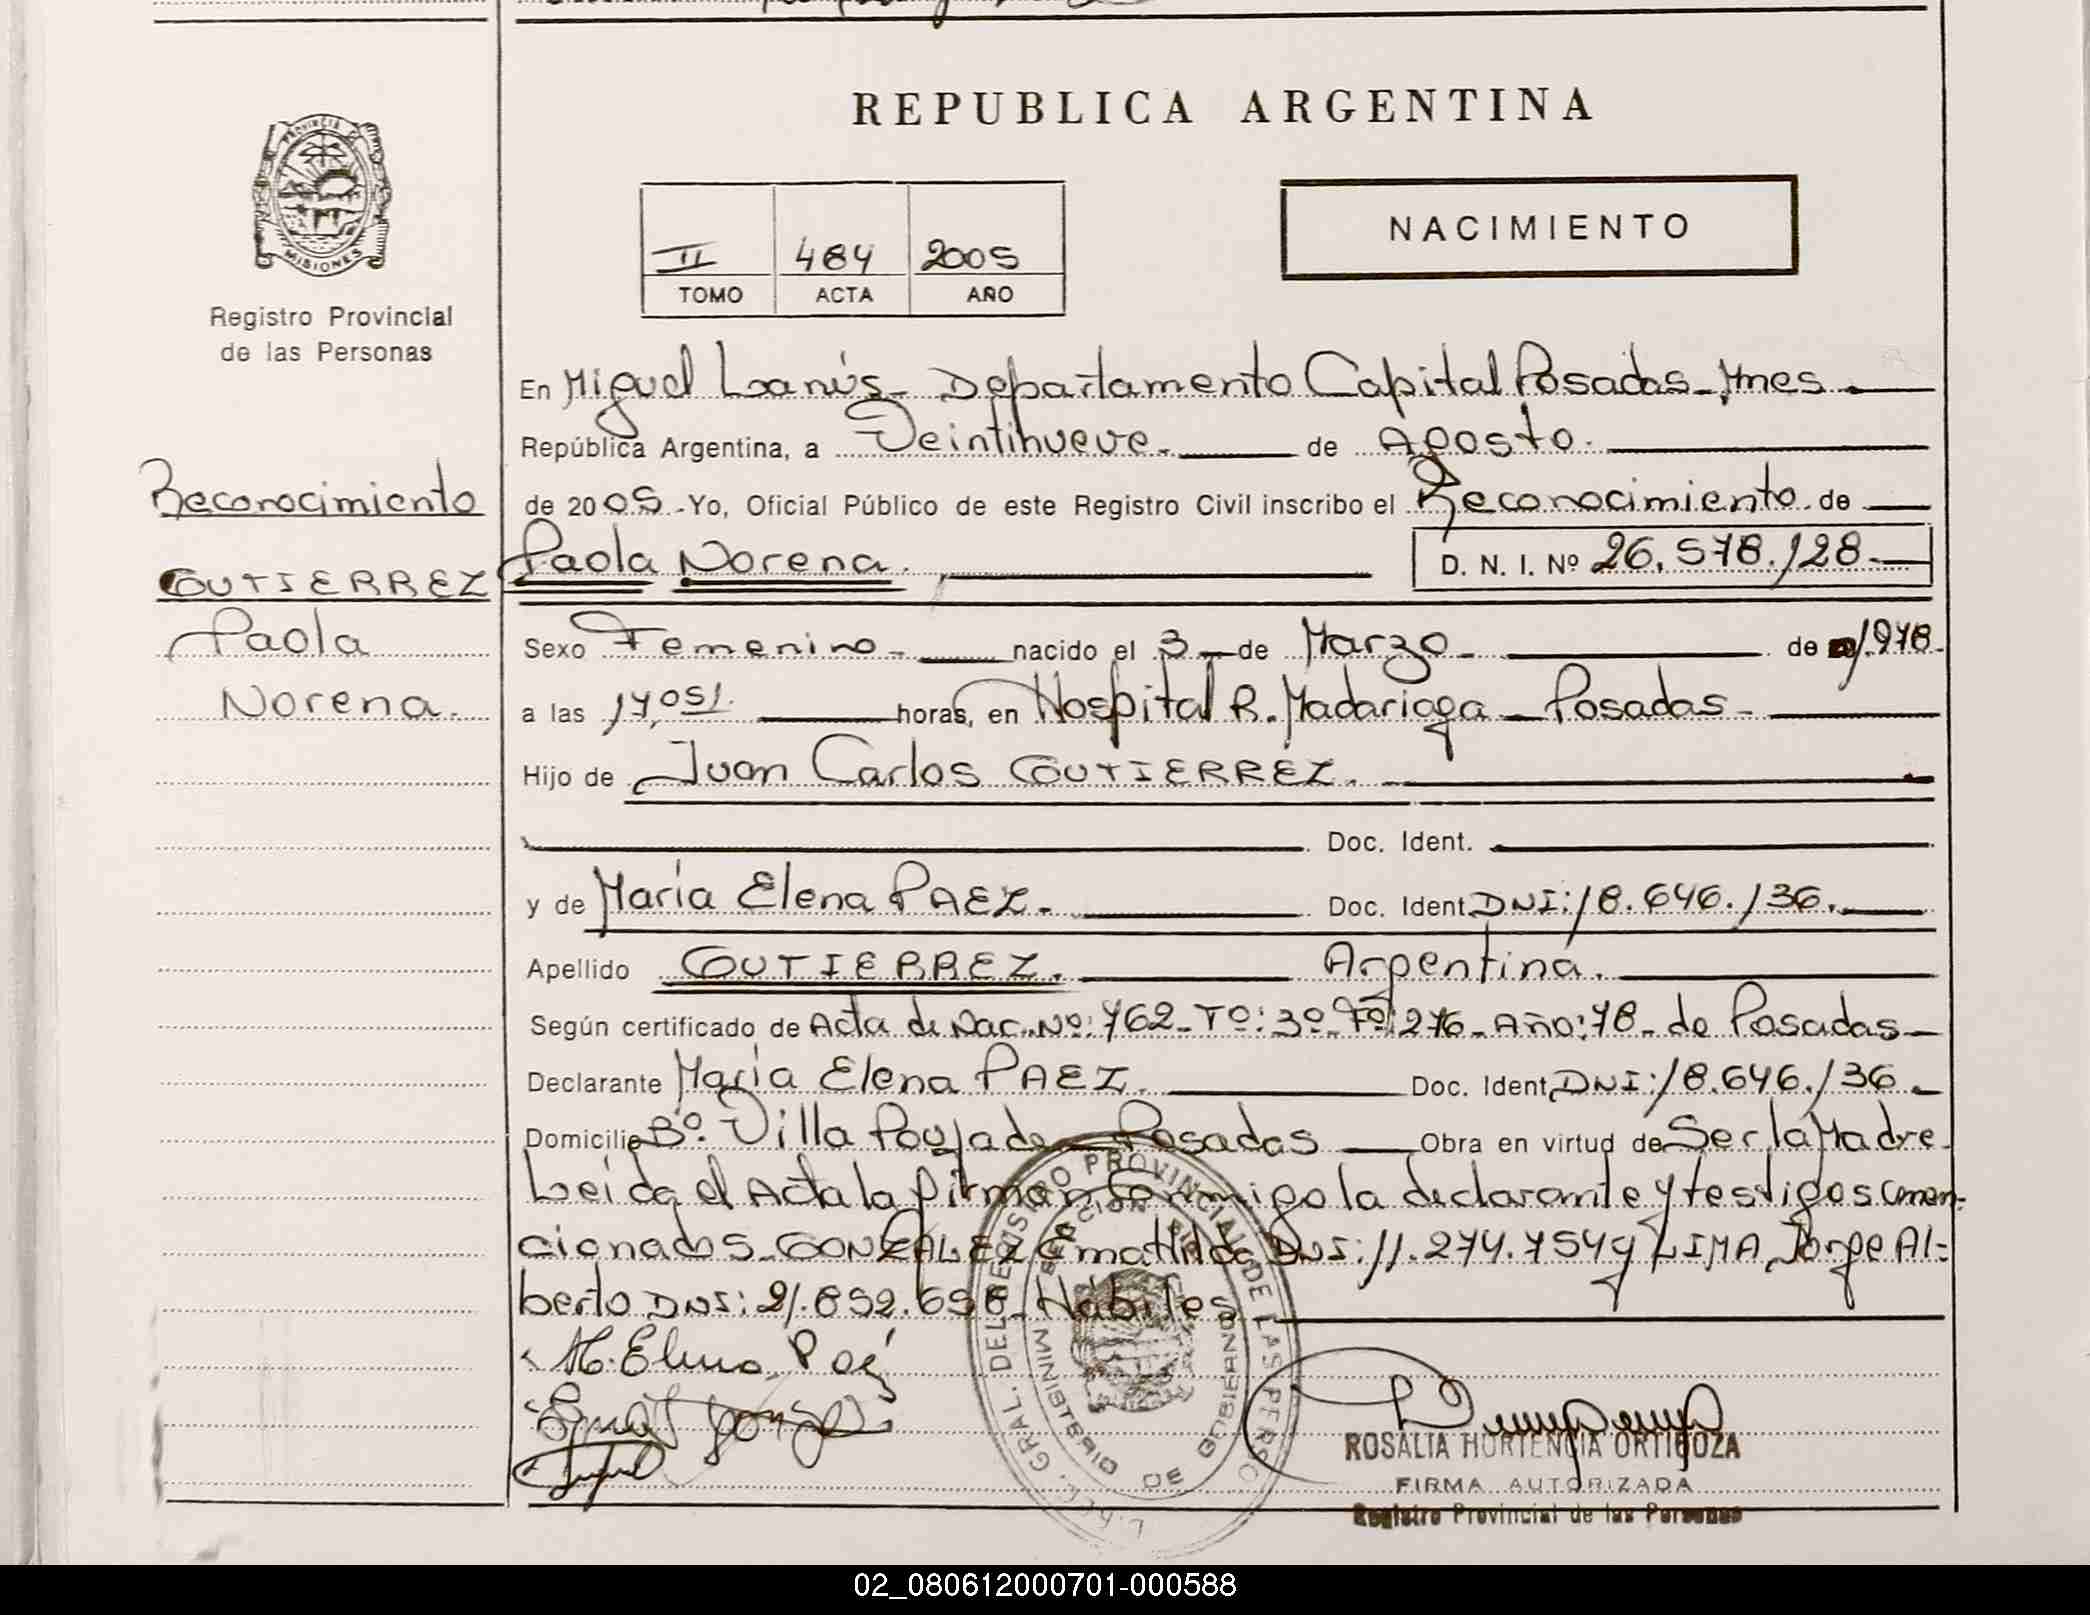 REPUBLICA ARGENTINA
PROVINCIA
MISIONES
Registro Provincial
de las Personas
II 484 2005
TOMO ACTA AÑO
NACIMIENTO
En Miguel Lanús - Departamento Capital Posadas - Mnes.
República Argentina, a Veintinueve. de Agosto.
de 2005 - Yo, Oficial Público de este Registro Civil inscribo el Reconocimiento de
Paola Norena. D. N. I. Nº 26.578.128.
Reconocimiento
GUTIERREZ
Paola
Norena.
Sexo Femenino - nacido el 3 - de Marzo - de 1.978.
a las 17,05/. horas, en Hospital R. Madariaga - Posadas -
Hijo de Juan Carlos GUTIERREZ.
Doc. Ident.
y de María Elena PAEZ. Doc. Ident. DNI: 18.646.136.
Apellido GUTIERREZ. Argentina.
Según certificado de Acta de Nac. Nº: 762 - Tº: 3º - Fº: 276 - Año: 78 - de Posadas -
Declarante María Elena PAEZ. Doc. Ident. DNI: 18.646.136 -
Domicilio Bº. Villa Poujade - Posadas Obra en virtud de Ser la Madre -
Leida el Acta la firman conmigo la declarante y testigos
cionados - GONZALEZ Ematilda DNI: 11.274.754 y LIMA Jorge Al-
berto DNI: 21.852.658 - Hábiles
M. Elena Paé
DEL REGISTRO PROVINCIAL DE LAS PERSO
MINISTERIO DE GOBIERNO
ROSALIA HORTENCIA ORTIGOZA
FIRMA AUTORIZADA
Registro Provincial de las Personas
02_080612000701-000588